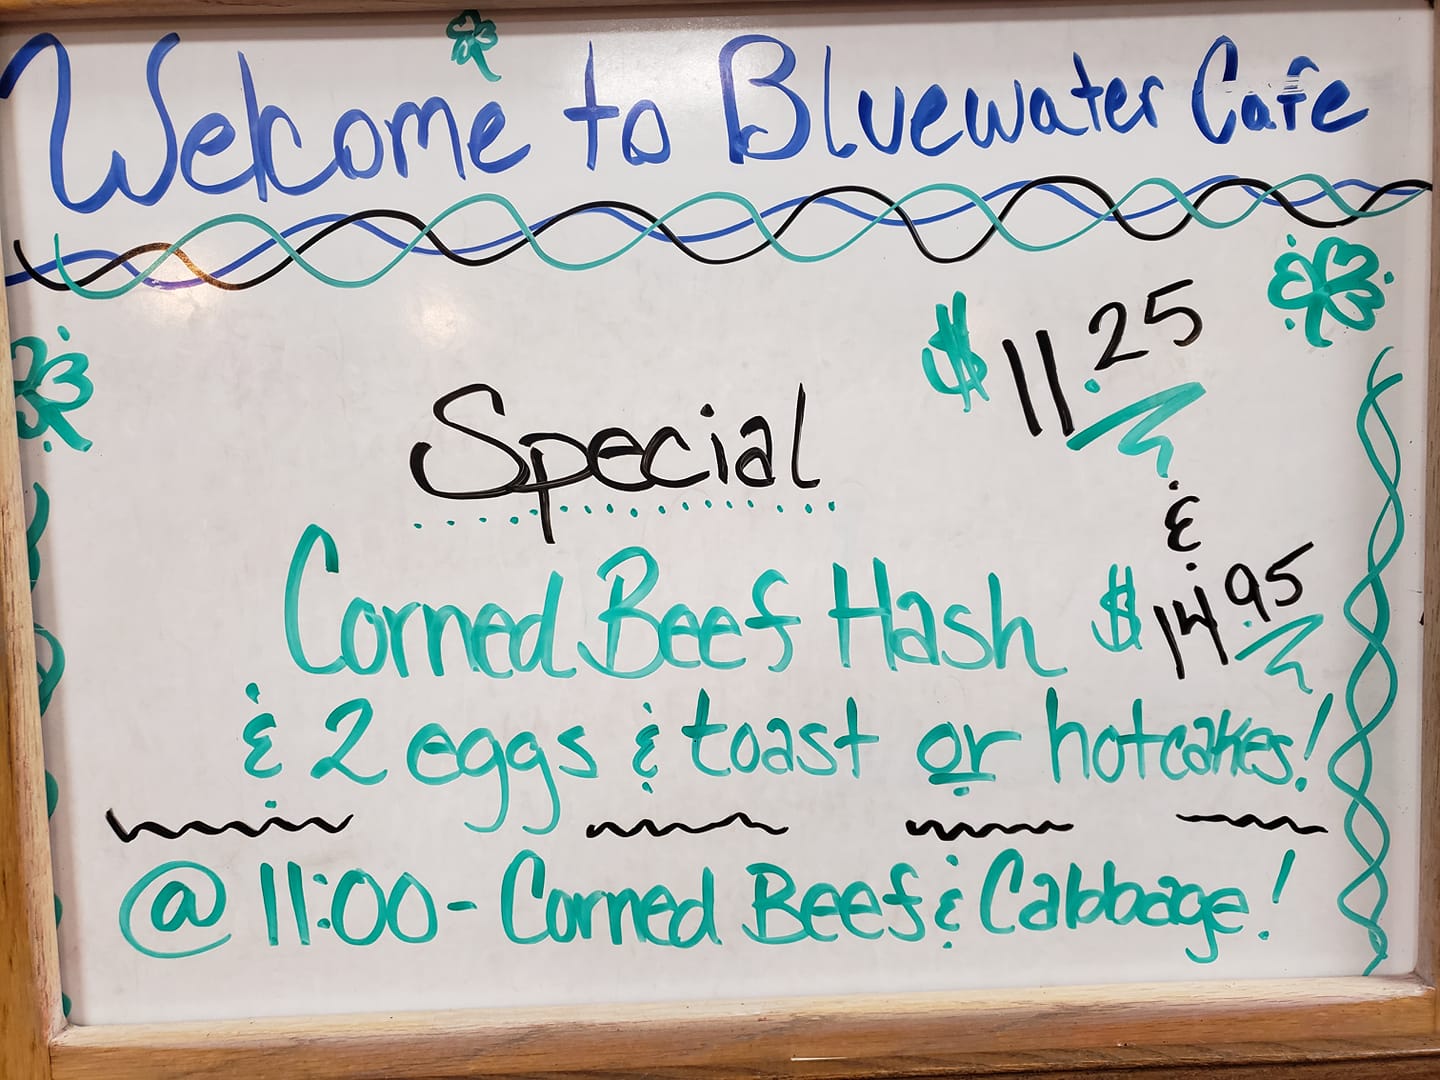 Welcome to Bluewater Cafe
$11.25
Special
&
$14.95
Corned Beef Hash
& 2 eggs & toast or hotcakes!
@ 11:00 - Corned Beef & Cabbage!